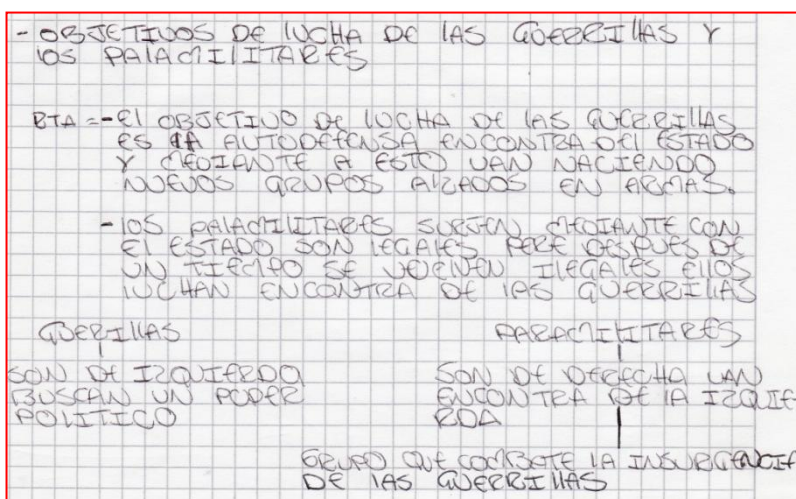 - OBJETIVOS DE LUCHA DE LAS GUERRILLAS Y
LOS PALAMILITARES
RTA = - El OBJETIVO DE LUCHA DE LAS GUERRILLAS
ES LA AUTODEFENSA ENCONTRA DEL ESTADO
Y MEDIANTE A ESTO VAN NACIENDO
NUEVOS GRUPOS ALZADOS EN ARMAS.
- LOS PALAMILITARES SURJEN MEDIANTE CON
El ESTADO SON LEGALES PERE DESPUES DE
UN TIEMPO SE VUELVEN ILEGALES ELLOS
LUCHAN ENCONTRA DE LAS GUERRILLAS
GUERILLAS PARAMILITARES
SON DE IZQUIERDO SON DE DERECHA VAN
BUSCAN UN PODER ENCONTRA DE LA IZQUIE
POLITICO RDA
GRUPO QUE COMBATE LA INSURGENCIA
DE LAS GUERRILLAS